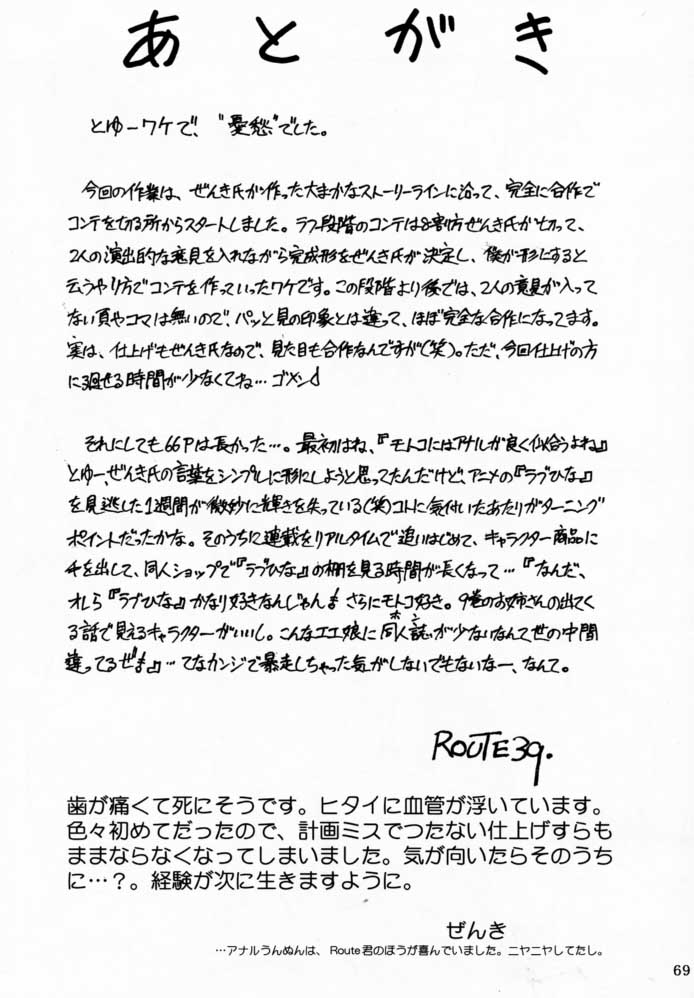 あとがき
とゆーワケで、“憂愁”でした。
今回の作業は、ぜんき氏が作った大まかなストーリーラインに沿って、完全に合作で
コンテを切る所からスタートしました。ラフ段階のコンテは8割方ぜんき氏が切って、
2人の演出的な意見を入れながら完成形をぜんき氏が決定し、僕が形にすると
云うやり方でコンテを作っていったワケです。この段階より後では、2人の意見が入って
ない頁やコマは無いので、パッと見の印象とは違って、ほぼ完全な合作になってます。
実は、仕上げもぜんき氏なので、見た目も合作なんですが(笑)。ただ、今回仕上げの方
に廻せる時間が少なくてね…ゴメン♪
それにしても66Pは長かった…。最初はね、『モトコにはアナルが良く似合うよね』
とゆー、ぜんき氏の言葉をシンプルに形にしようと思ってたんだけど、アニメの『ラブひな』
を見逃した1週間が微妙に輝きを失っている(笑)コトに気付いたあたりがターニング
ポイントだったかな。そのうちに連載をリアルタイムで追いはじめて、キャラクター商品に
手を出して、同人ショップで『ラブひな』の棚を見る時間が長くなって…『なんだ、
オレら『ラブひな』かなり好きなんじゃん！さらにモトコ好き。9巻のお姉さんの出てく
る話で見えるキャラクターがいいし。こんなエエ娘に同人誌(ホン)が少ないなんて世の中間
違ってるぜ！』…てなカンジで暴走しちゃった気がしないでもないなー、なんて。
ROUTE39.
歯が痛くて死にそうです。ヒタイに血管が浮いています。
色々初めてだったので、計画ミスでつたない仕上げすらも
ままならなくなってしまいました。気が向いたらそのうち
に…？。経験が次に生きますように。
ぜんき
…アナルうんぬんは、Route君のほうが喜んでいました。ニヤニヤしてたし。
69